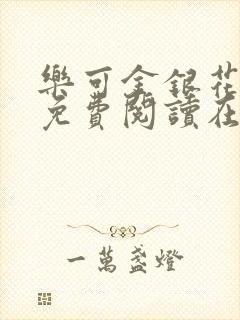 樂可金銀花
免費閱讀在
一萬盞燈